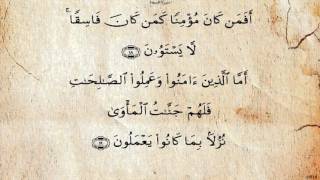 أَفَمَن كَانَ مُؤْمِنًا كَمَن كَانَ فَاسِقًا ۚ
لَّا يَسْتَوُۥنَ ﴿١٨﴾
أَمَّا الَّذِينَ ءَامَنُوا۟ وَعَمِلُوا۟ الصَّـٰلِحَـٰتِ
فَلَهُمْ جَنَّـٰتُ الْمَأْوَىٰ
نُزُلًۢا بِمَا كَانُوا۟ يَعْمَلُونَ ﴿١٩﴾